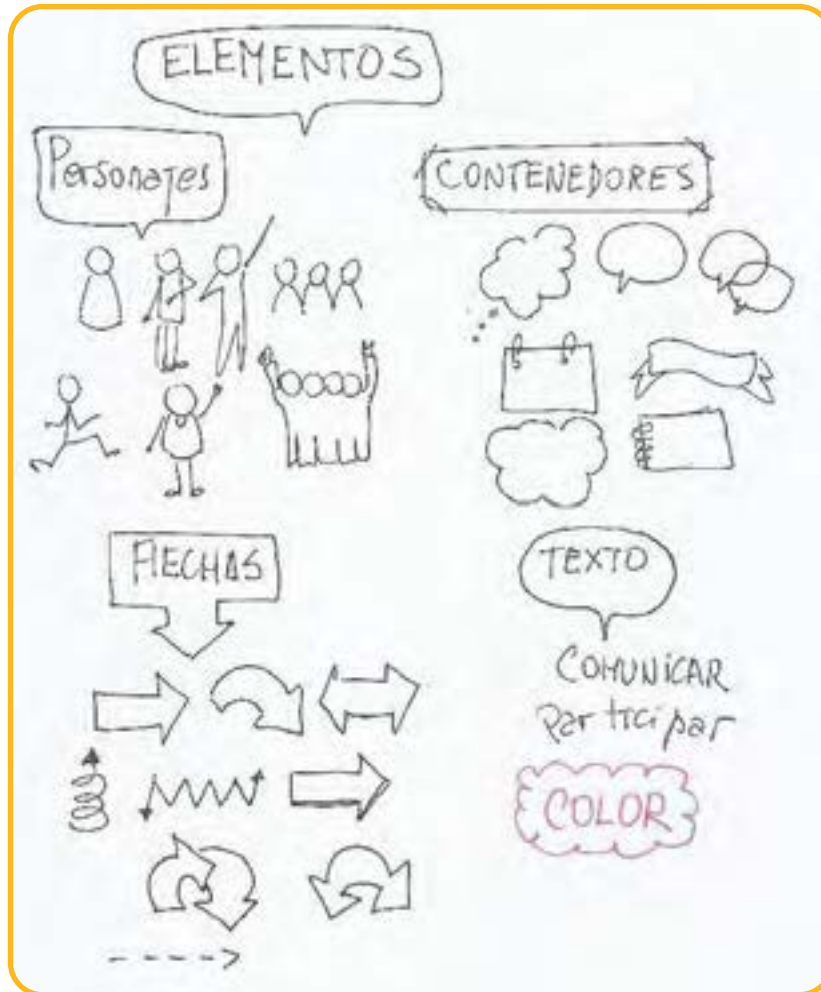 ELEMENTOS
Personajes
CONTENEDORES
FLECHAS
TEXTO
COMUNICAR
Participar
COLOR